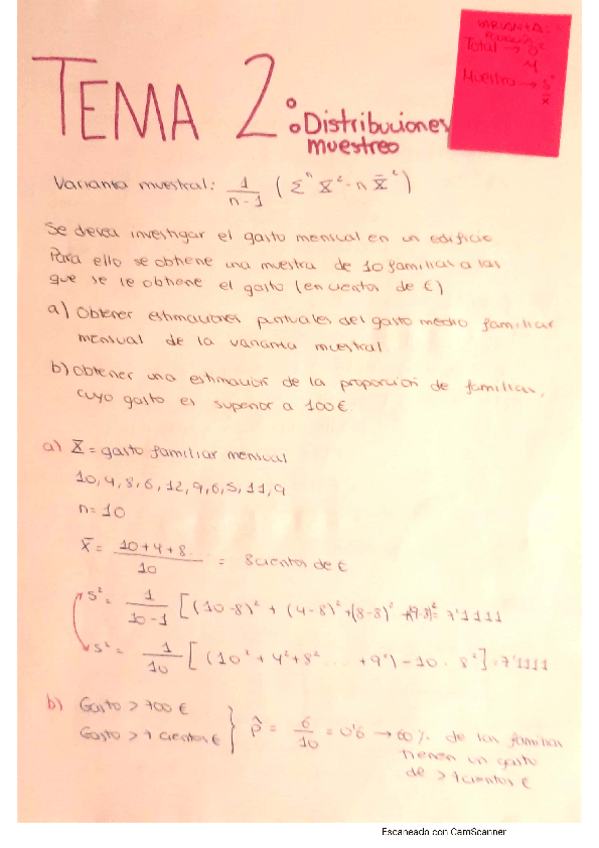 VARIANZA:
Total → σ²
μ
Muestra → s²
x̄
TEMA 2: Distribuciones
muestreo
Varianza muestral: 1/(n-1) (Σⁿ x² - n x̄²)
Se desea investigar el gasto mensual en un edificio
Para ello se obtiene una muestra de 10 familias a las
que se le obtiene el gasto (en cientos de €)
a) Obtener estimaciones puntuales del gasto medio familiar
mensual de la varianza muestral
b) obtener una estimación de la proporción de familias,
cuyo gasto es superior a 700€
a) X̄ = gasto familiar mensual
10, 4, 8, 6, 12, 9, 6, 5, 11, 9
n = 10
x̄ = (10+4+8..)/10 = 8 cientos de €
s² = 1/(10-1) [(10-8)² + (4-8)² + (8-8)² + (9-8)² = 7'1111
s² = 1/10 [(10² + 4² + 8² ... + 9²) - 10 · 8²] = 7'1111
b) Gasto > 700 €
Gasto > 7 cientos €
p̂ = 6/10 = 0'6 → 60% de las familias
tienen un gasto
de > 7 cientos €
Escaneado con CamScanner